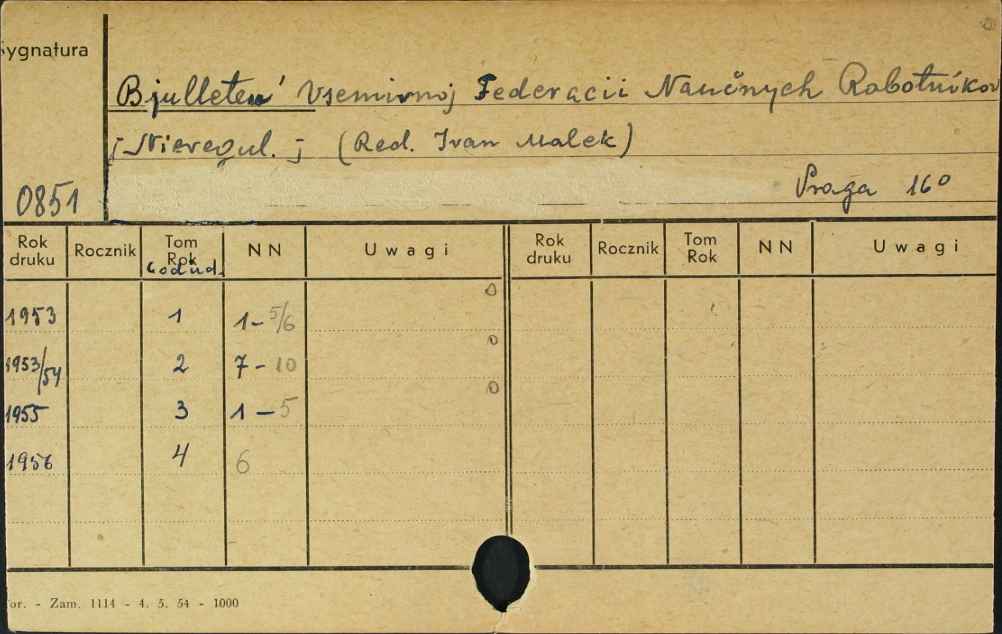 Sygnatura
Bjulleten' Vsemirnoj Federacii Naučnych Rabotnikov
; Nieregul. ; (Red. Ivan Malek)
0851 Praga 16º
Rok druku Rocznik Tom Rok God izd. N N Uwagi Rok druku Rocznik Tom Rok N N Uwagi
1953 1 1-5/6 0
1953/54 2 7-10 0
1955 3 1-5 0
1956 4 6
or. - Zam. 1114 - 4. 5. 54 - 1000